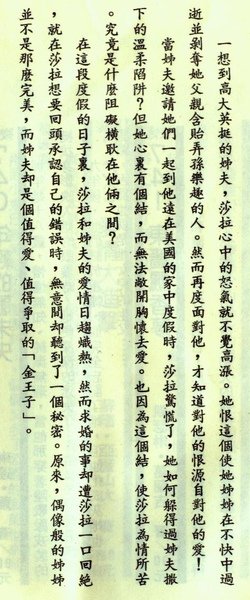 一想到高大英挺的姊夫，莎拉心中的怒氣就不覺高漲。她恨這個使她姊姊在不快中過
逝並剝奪她父親含貽弄孫樂趣的人。然而再度面對他，才知道對他的恨源自對他的愛！
當姊夫邀請她們一起到他遠在美國的家中度假時，莎拉驚慌了，她如何躲得過姊夫撒
下的溫柔陷阱？但她心裏有個結，而無法敞開胸懷去愛。也因為這個結，使莎拉為情所苦
。究竟是什麼阻礙橫耿在他倆之間？
在這段度假的日子裏，莎拉和姊夫的愛情日趨熾熱，然而求婚的事卻遭莎拉一口回絶
，就在莎拉想要回頭承認自己的錯誤時，無意間卻聽到了一個秘密。原來，偶像般的姊姊
並不是那麼完美，而姊夫卻是個值得愛、值得爭取的「金王子」。